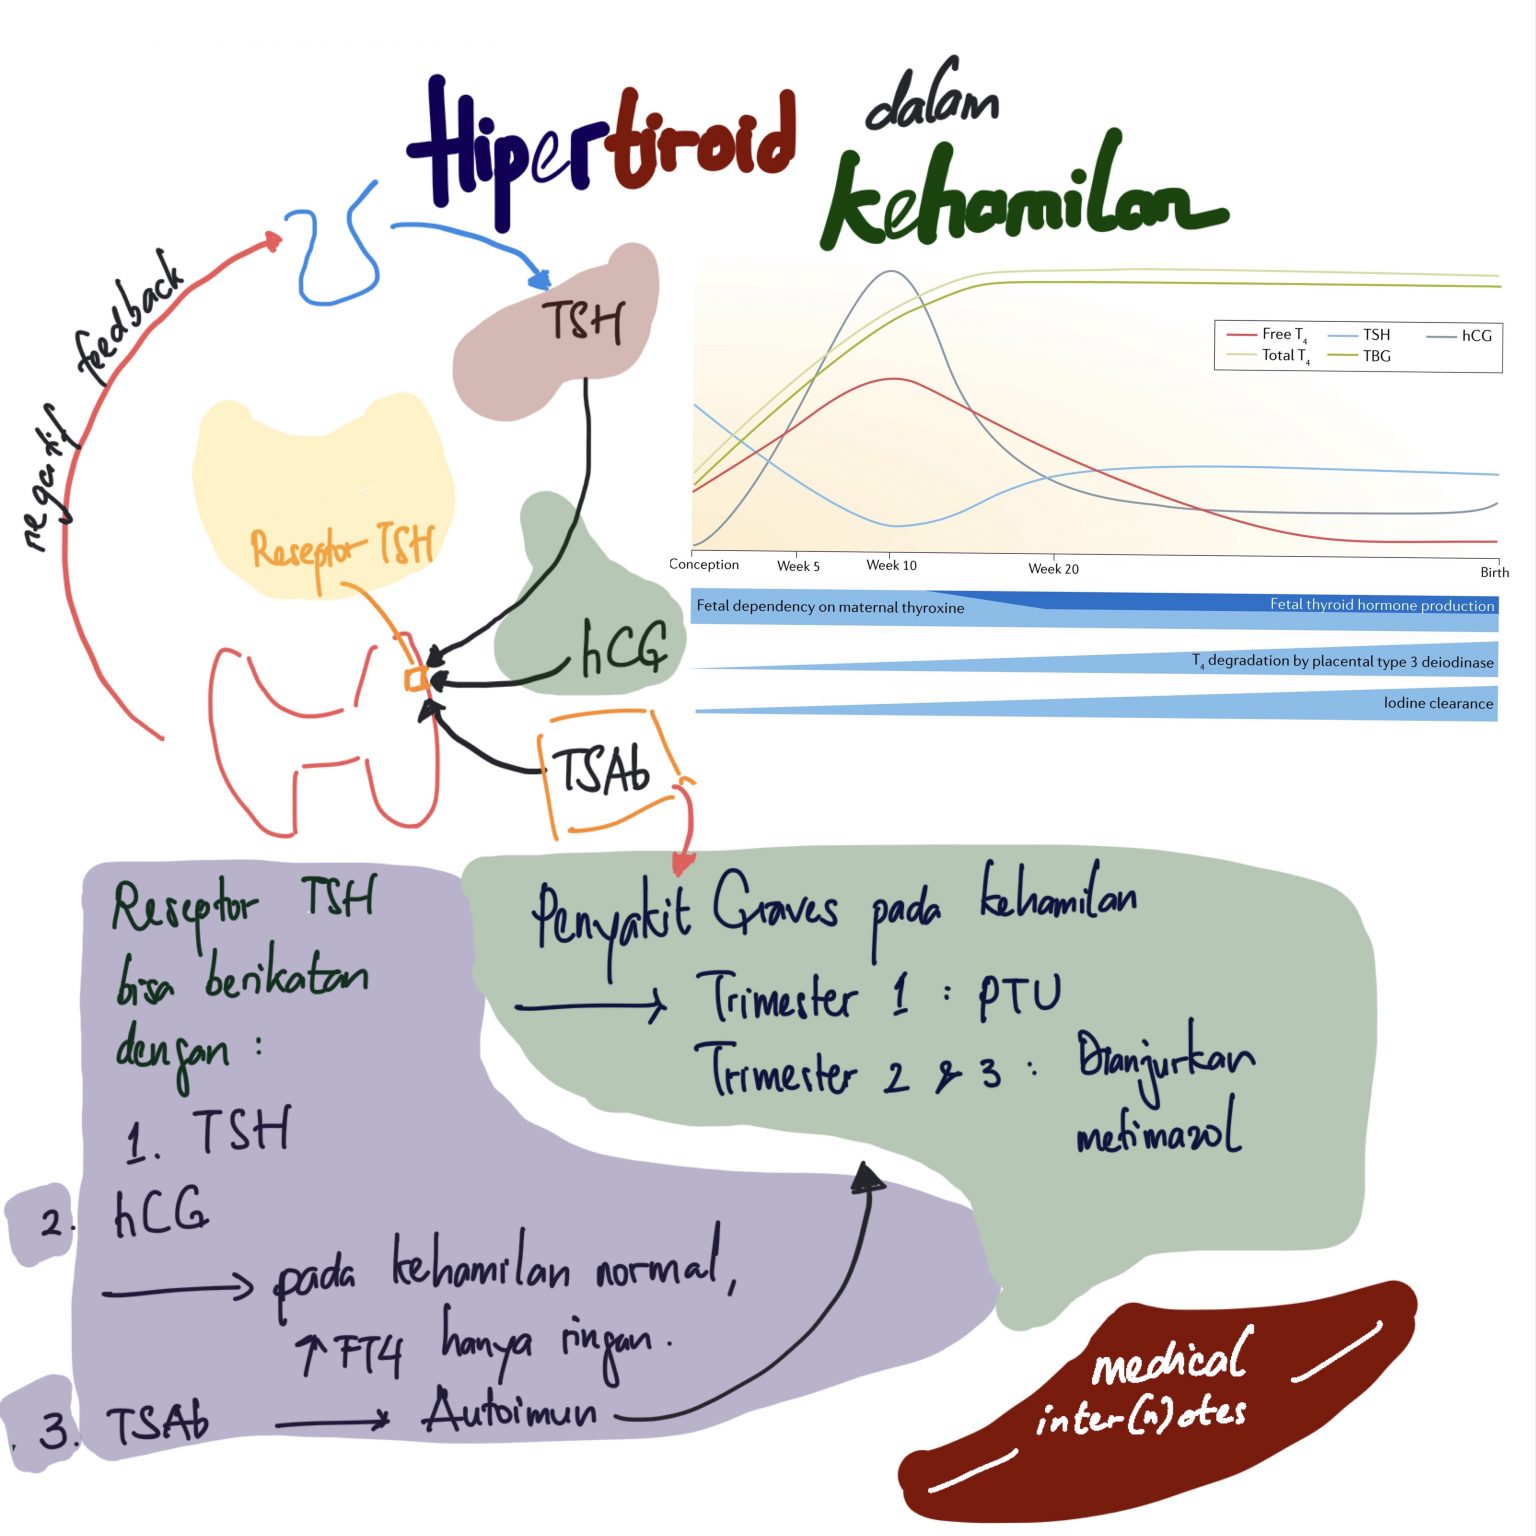 Hipertiroid dalam
kehamilan
negatif feedback
TSH
Reseptor TSH
hCG
TSAb
Free T4
TSH
hCG
Total T4
TBG
Conception
Week 5
Week 10
Week 20
Birth
Fetal dependency on maternal thyroxine
Fetal thyroid hormone production
T4 degradation by placental type 3 deiodinase
Iodine clearance
Reseptor TSH
bisa berikatan
dengan :
1. TSH
2. hCG
→ pada kehamilan normal,
↑ FT4 hanya ringan.
3. TSAb → Autoimun
Penyakit Graves pada kehamilan
→ Trimester 1 : PTU
Trimester 2 & 3 : Dianjurkan
metimazol
medical
inter(n)otes